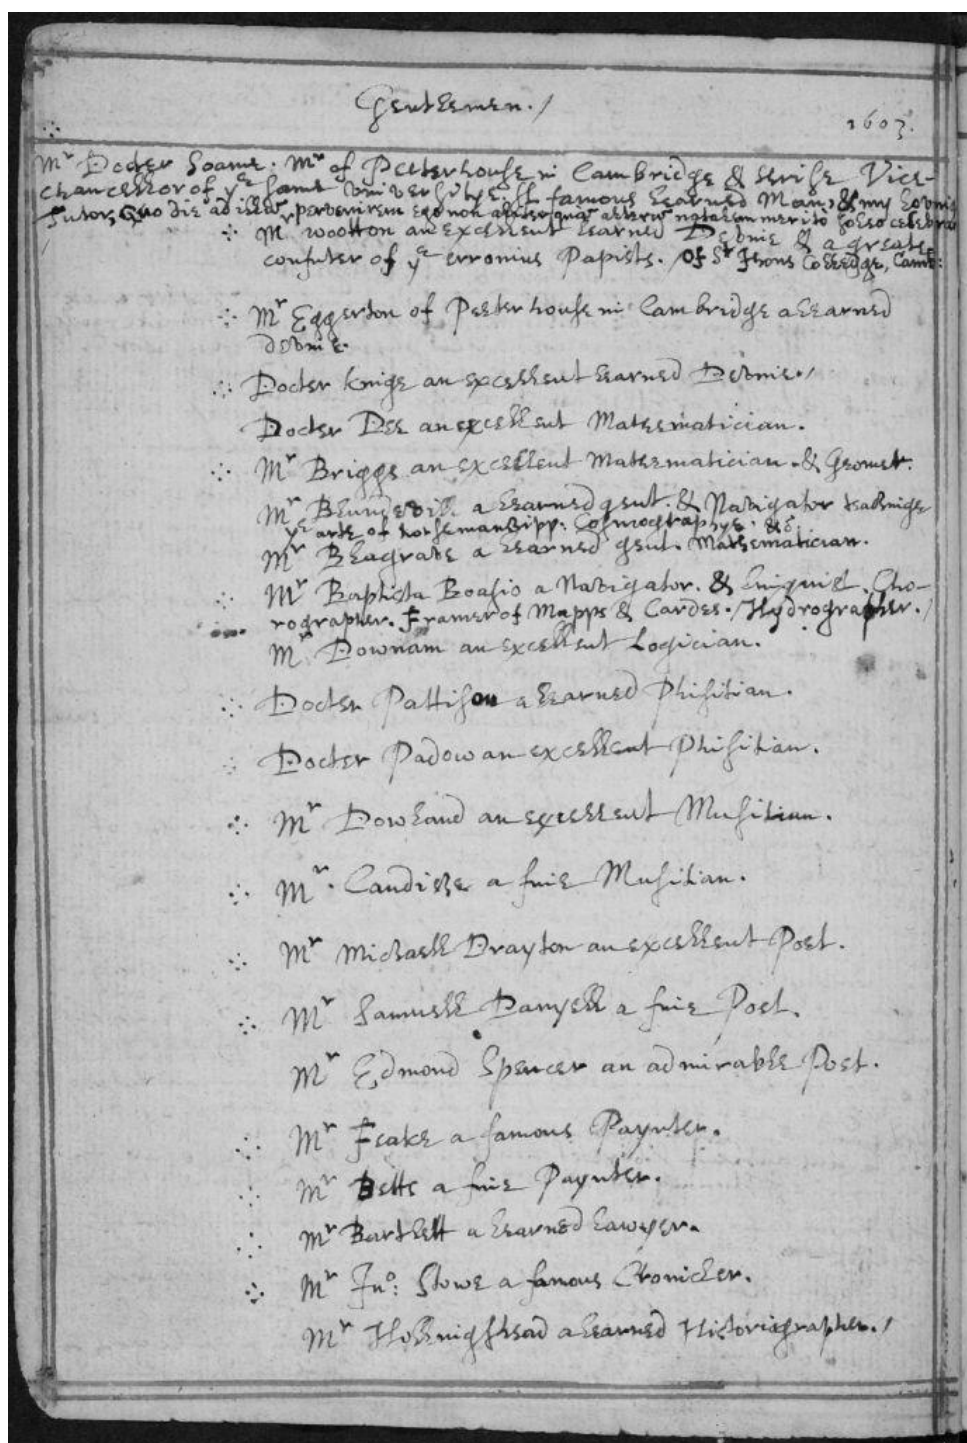 Gentlemen./
1603.
Mr Docter Soame. Mr of Peeterhouse in Cambridge & Vice-
Chancellor of ye same Vniversitye, famous learned Man, & my Lovinge
Tutor, Quo die ad illum pervenirem ego non aliter quam alterum natalem merito soleo celebrare
Mr Wootton an excellent learned Devine & a greate
confuter of ye erronius Papists. / Of St Jhons Colledge, Camb:
Mr Eggerton of Peeterhouse in Cambridge a learned
devine.
Docter Kinge an excellent learned Devine./
Docter Dee an excellent Mathematician.
Mr Briggs an excellent Mathematician. & Geometr.
Mr Blundevill a learned gent. & Navigator
ye arte of horsemanshipp: Cosmographye. &c.
Mr Blagrave a learned gent. Mathematician.
Mr Baptista Boasio a Navigator. & Cho-
rographer. Framer of Mapps & Cardes./ Hydrographer./
Mr Downam an excellent Logician.
Docter Pattison a learned Phisitian.
Docter Padow an excellent Phisitian.
Mr Dowland an excellent Musitian.
Mr. Candishe a fine Musitian.
Mr Michaell Drayton an excellent Poet.
Mr Samuell Danyell a fine Poet.
Mr Edmond Spencer an admirable Poet.
Mr Feake a famous Paynter.
Mr Betts a fine Paynter.
Mr Bartlett a learned Lawyer.
Mr Jno: Stowe a famous Cronicler.
Mr Hollingshead a learned Historiographer./